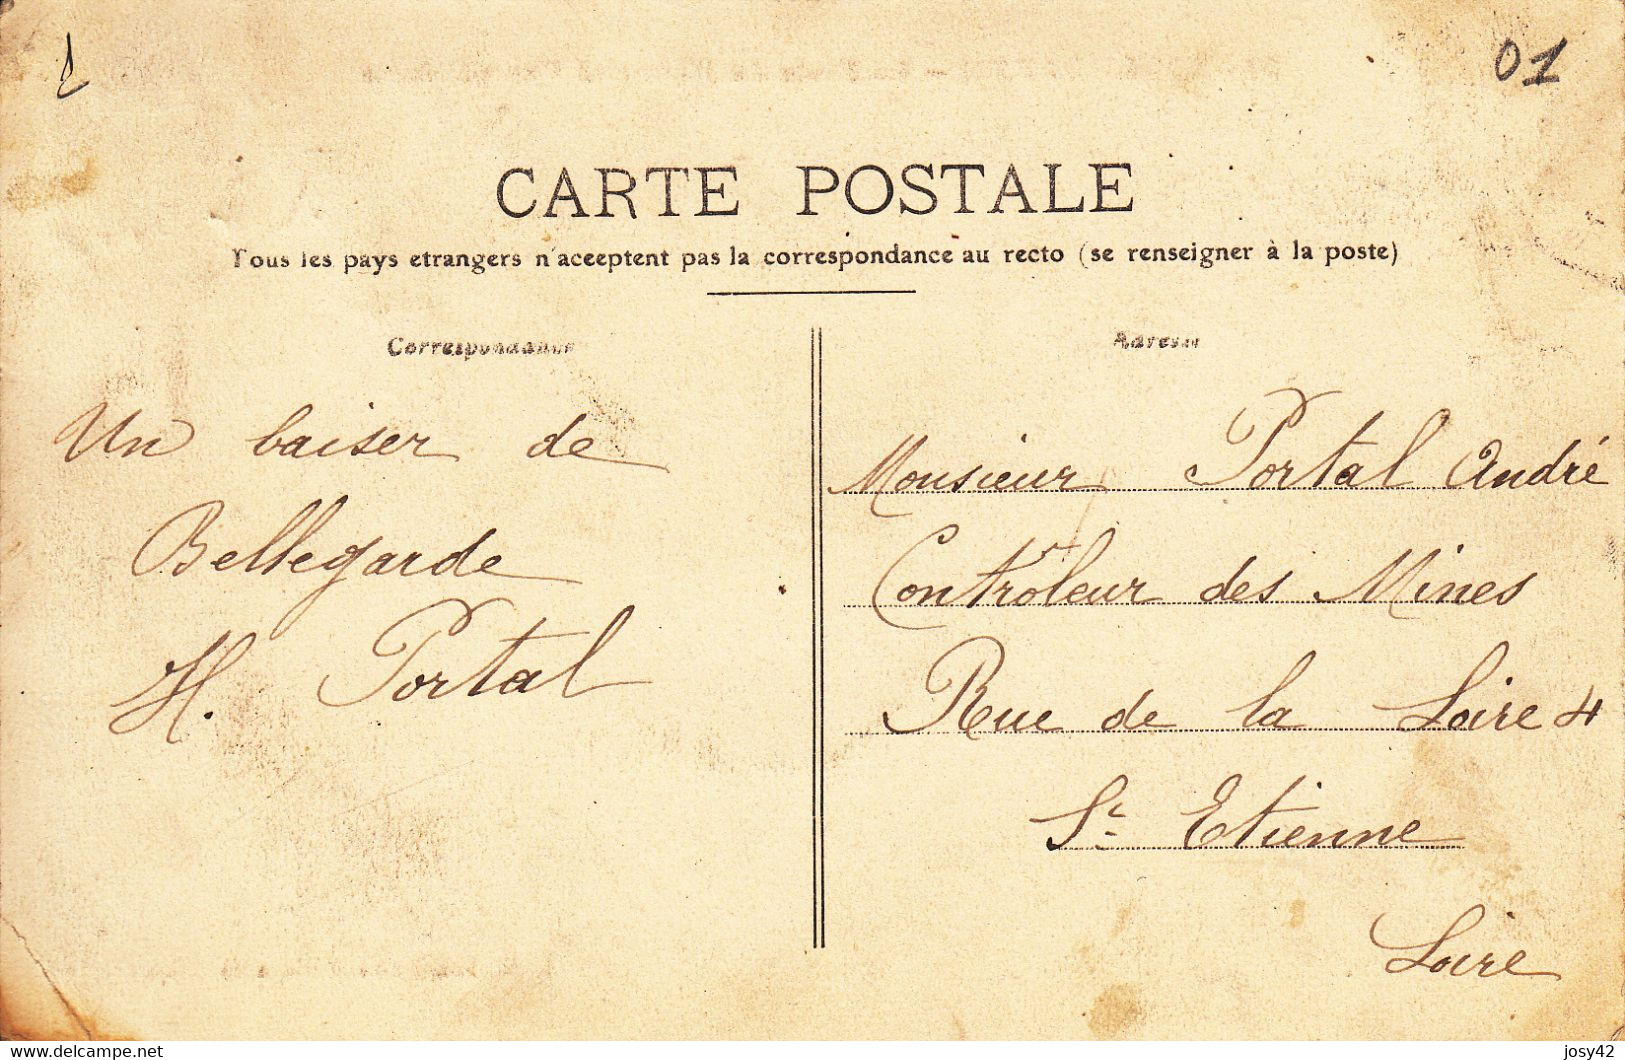 01
CARTE POSTALE
Tous les pays etrangers n'aceeptent pas la correspondance au recto (se renseigner à la poste)
Correspondance
Adresse
Un baiser de
Bellegarde
H. Portal
Monsieur Portal André
Contrôleur des Mines
Rue de la Loire 4
St Etienne
Loire
delcampe.net
josy42